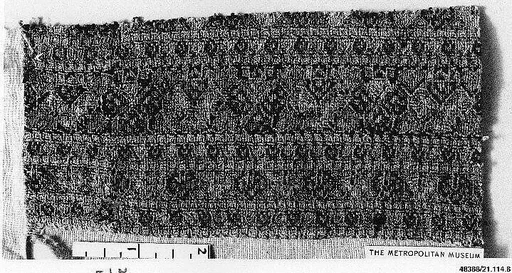 1 2
THE METROPOLITAN MUSEUM
48388/21.114.6